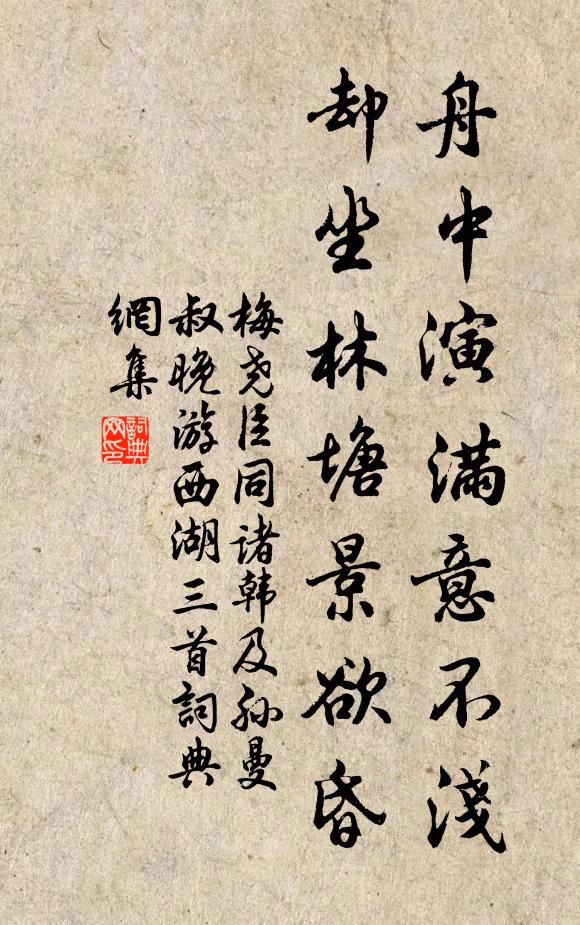 舟中演滿意不淺
却坐林塘景欲昏
梅堯臣同诸韩及孙曼
叔晚游西湖三首詞典
網集
詞典
网印